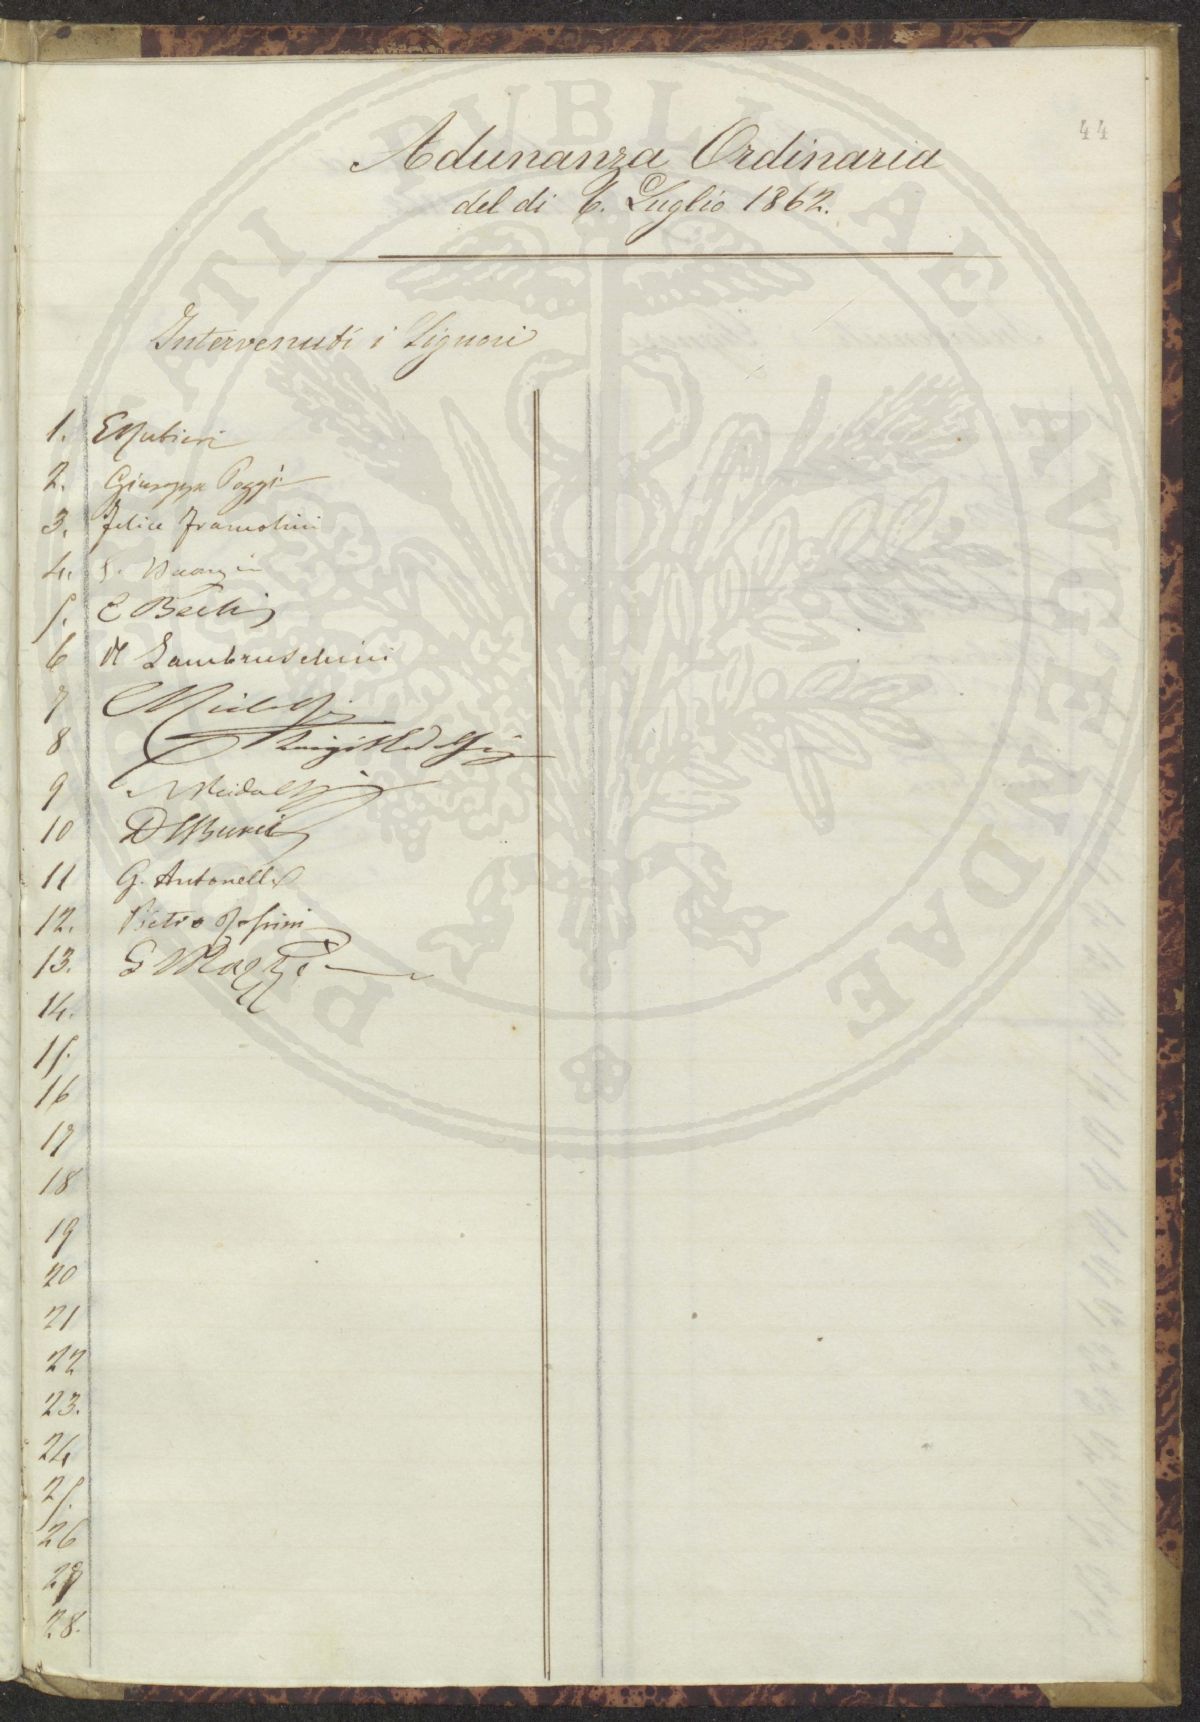 44
Adunanza Ordinaria
del di 6. Luglio 1862.
Intervenuti i Signori
1. E Rubieri
2. Giuseppe Poggi
3. Felice Francolini
4.
5. E Bechi
6 R Lambruschini
7
8 Luigi
9
10
11 G. Antonelli
12. Pietro
13. G
14.
15.
16
17
18
19
20
21
22
23.
24
25.
26
27
28.
PROSPERITATI PUBLICAE AVGENDAE